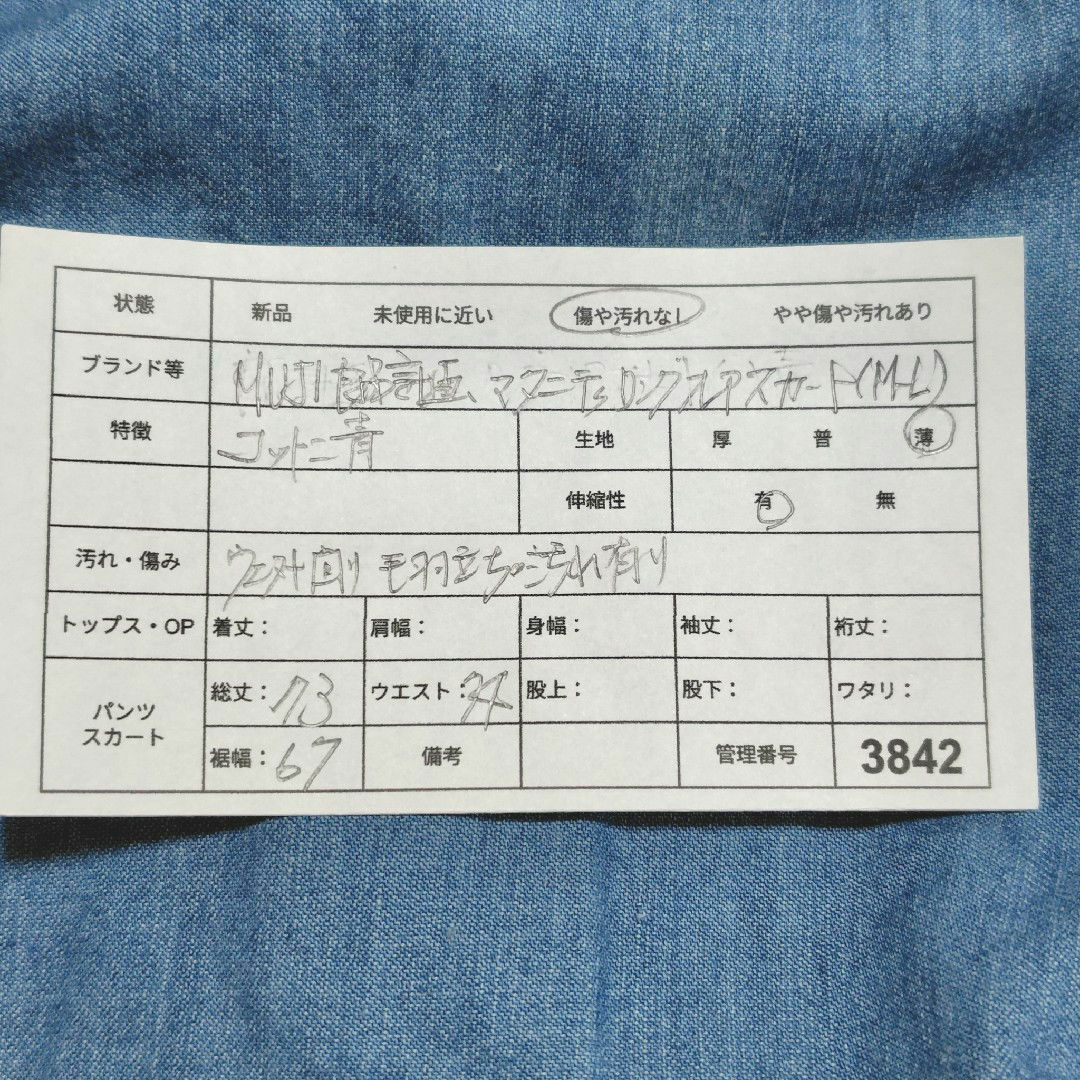 状態 新品 未使用に近い 傷や汚れなし やや傷や汚れあり
ブランド等 MUJI 良品計画、マタニティロングフレアスカート(M-L)
特徴 コットン 青 生地 厚 普 薄
伸縮性 有 無
汚れ・傷み ウエスト周り 毛羽立ち 汚れ有り
トップス・OP 着丈: 肩幅: 身幅: 袖丈: 裄丈:
パンツ スカート 総丈:73 ウエスト: 股上: 股下: ワタリ:
裾幅:67 備考 管理番号 3842